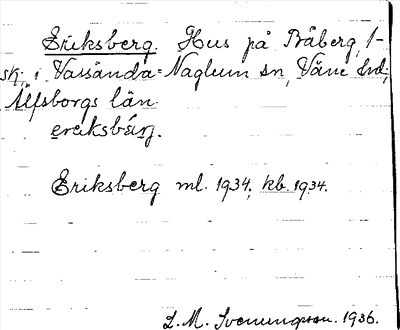 Eriksberg. Hus på Råberg, 1-
sk; i Vassända-Naglum sn, Väne hd;
Älfsborgs län.
ereksbärj.
Eriksberg ml. 1934, kb. 1934.
L. M. Svenungsson. 1936.